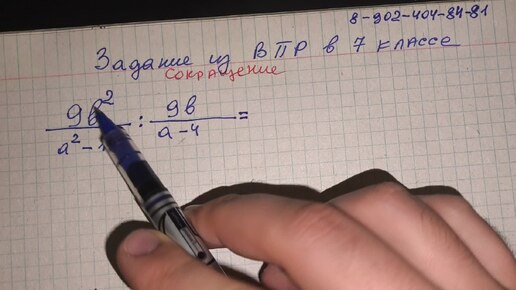 8-902-404-84-81
Задание из ВПР в 7 классе
сокращение
9в² : 9в =
а² - а - 4